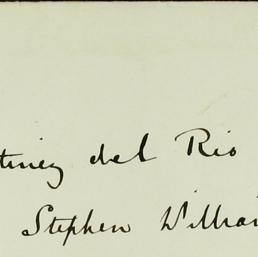 tinez del Rio
Stephen Willia